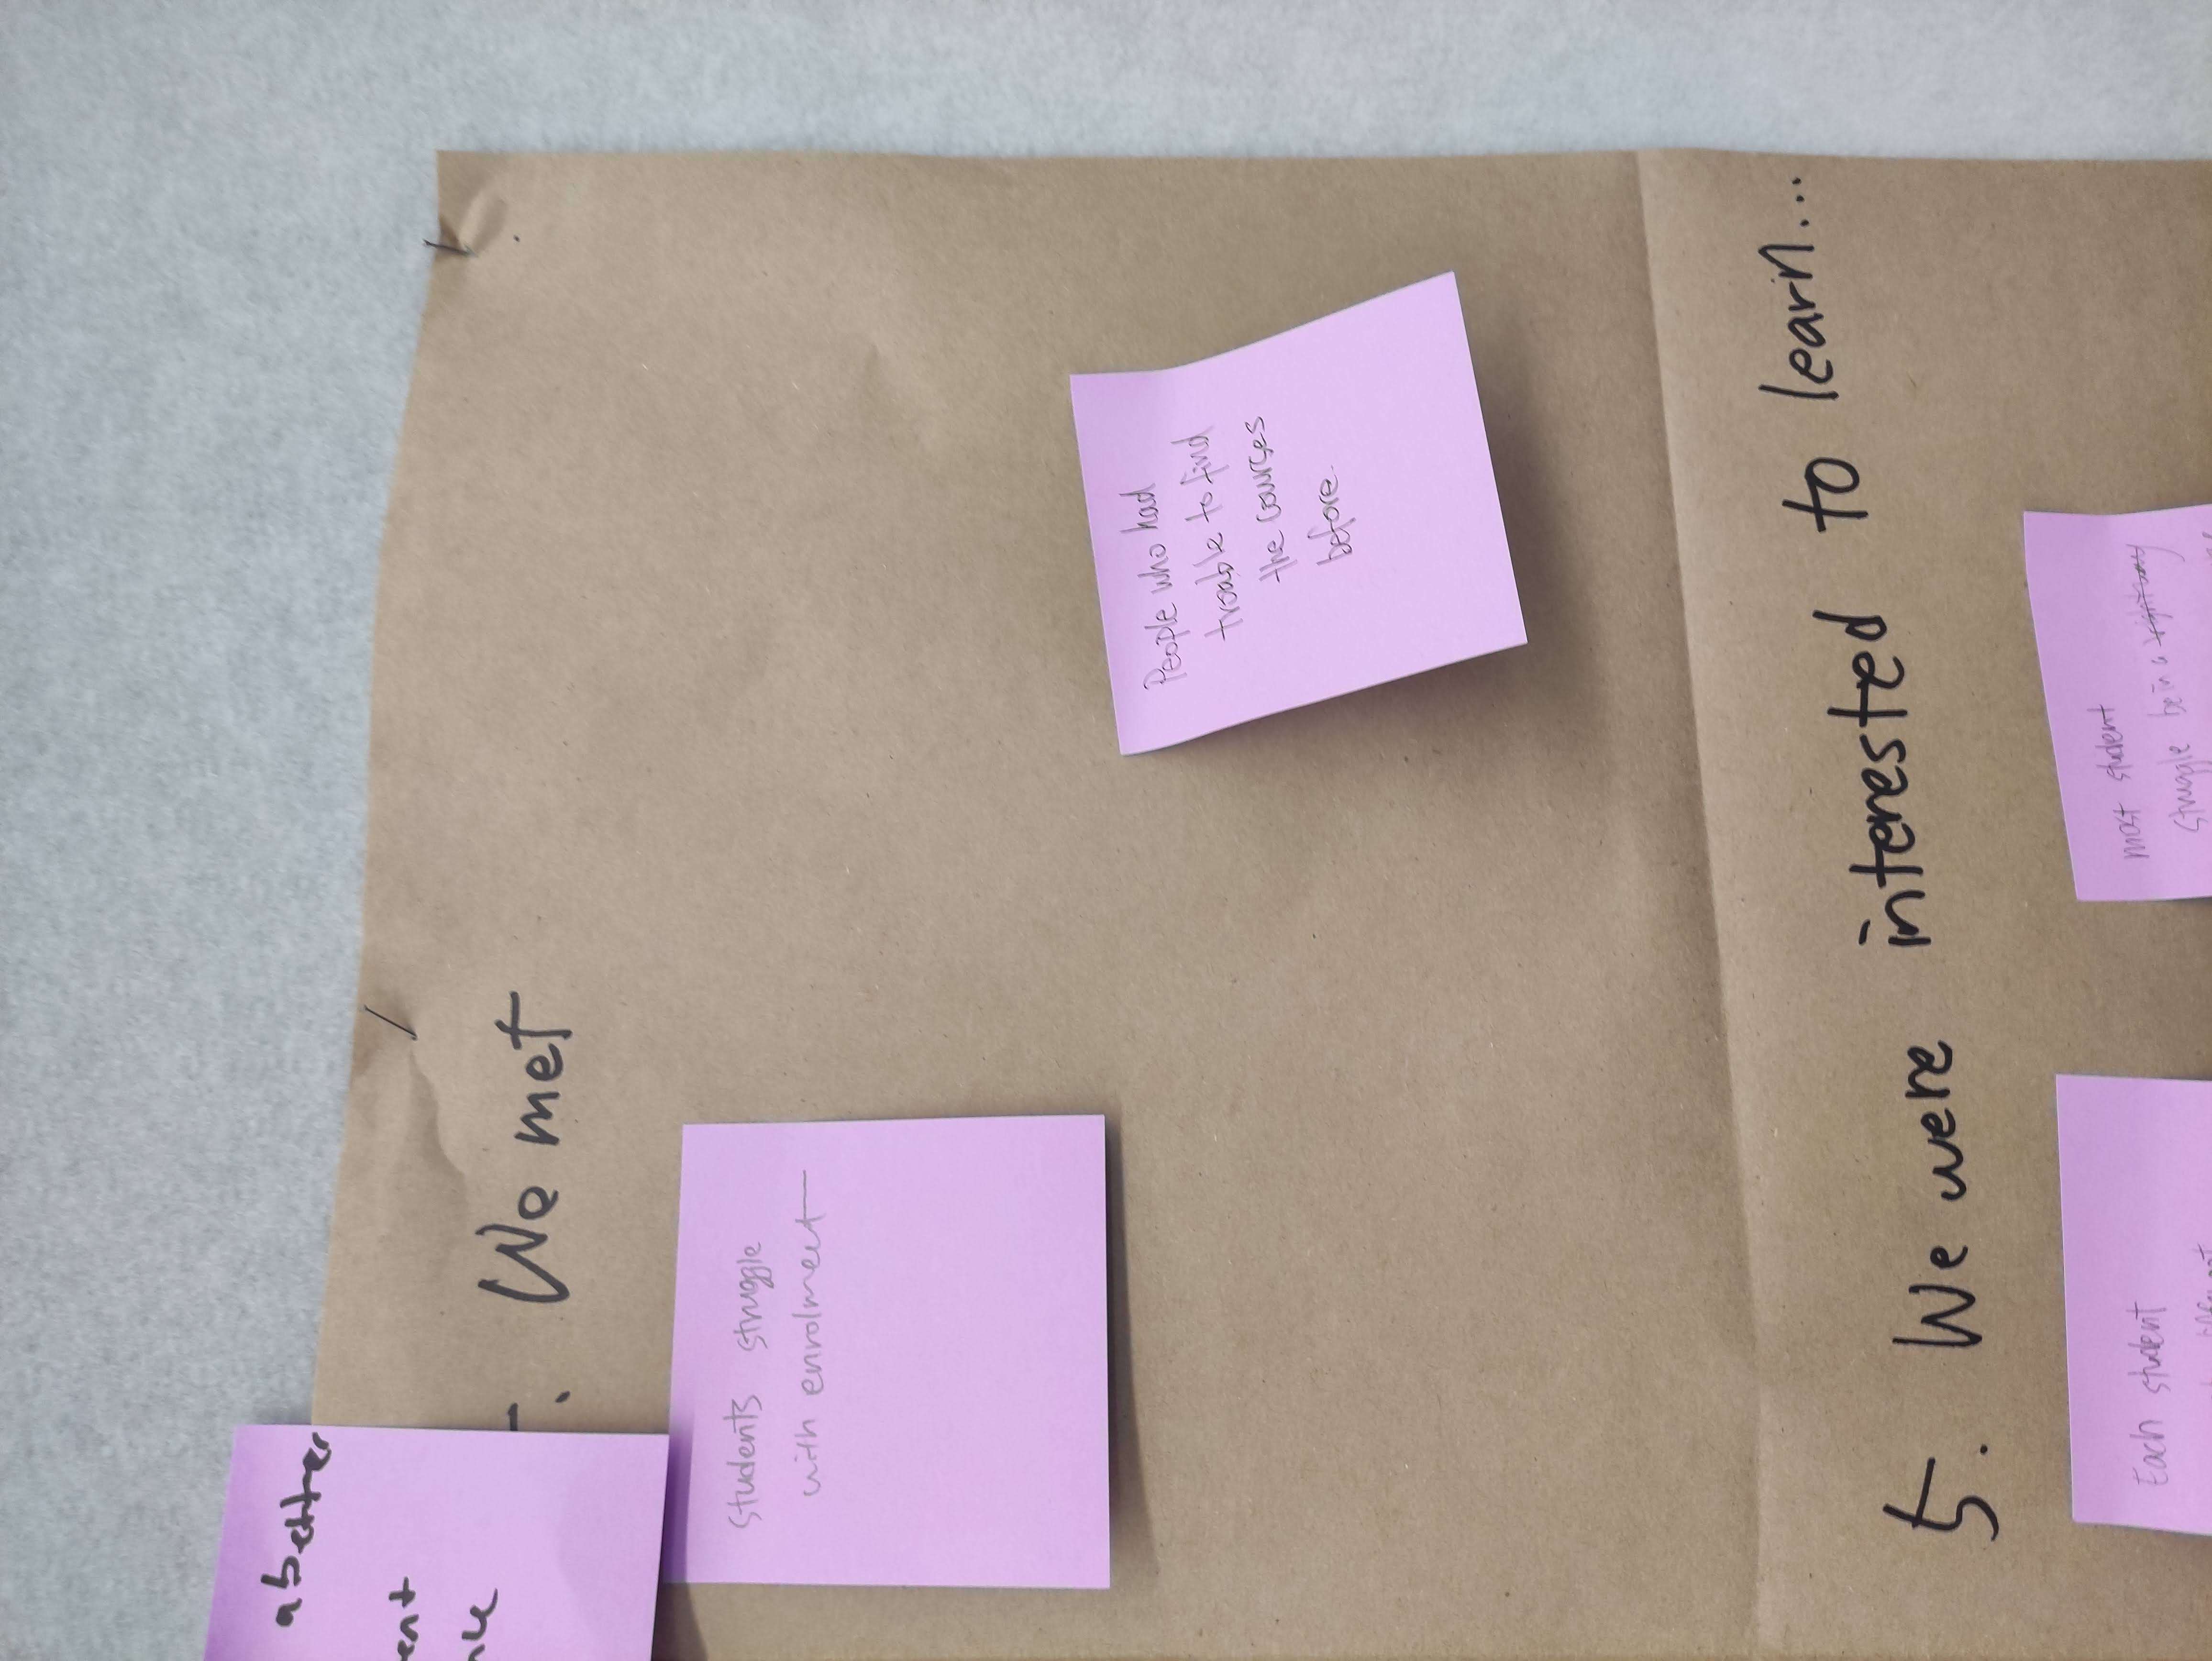 a better
ent
. We met
students struggle
with enrolment
People who had
trouble to find
the courses
before.
5. We were interested to learn...
Each student
different
most student
struggle be in a right way